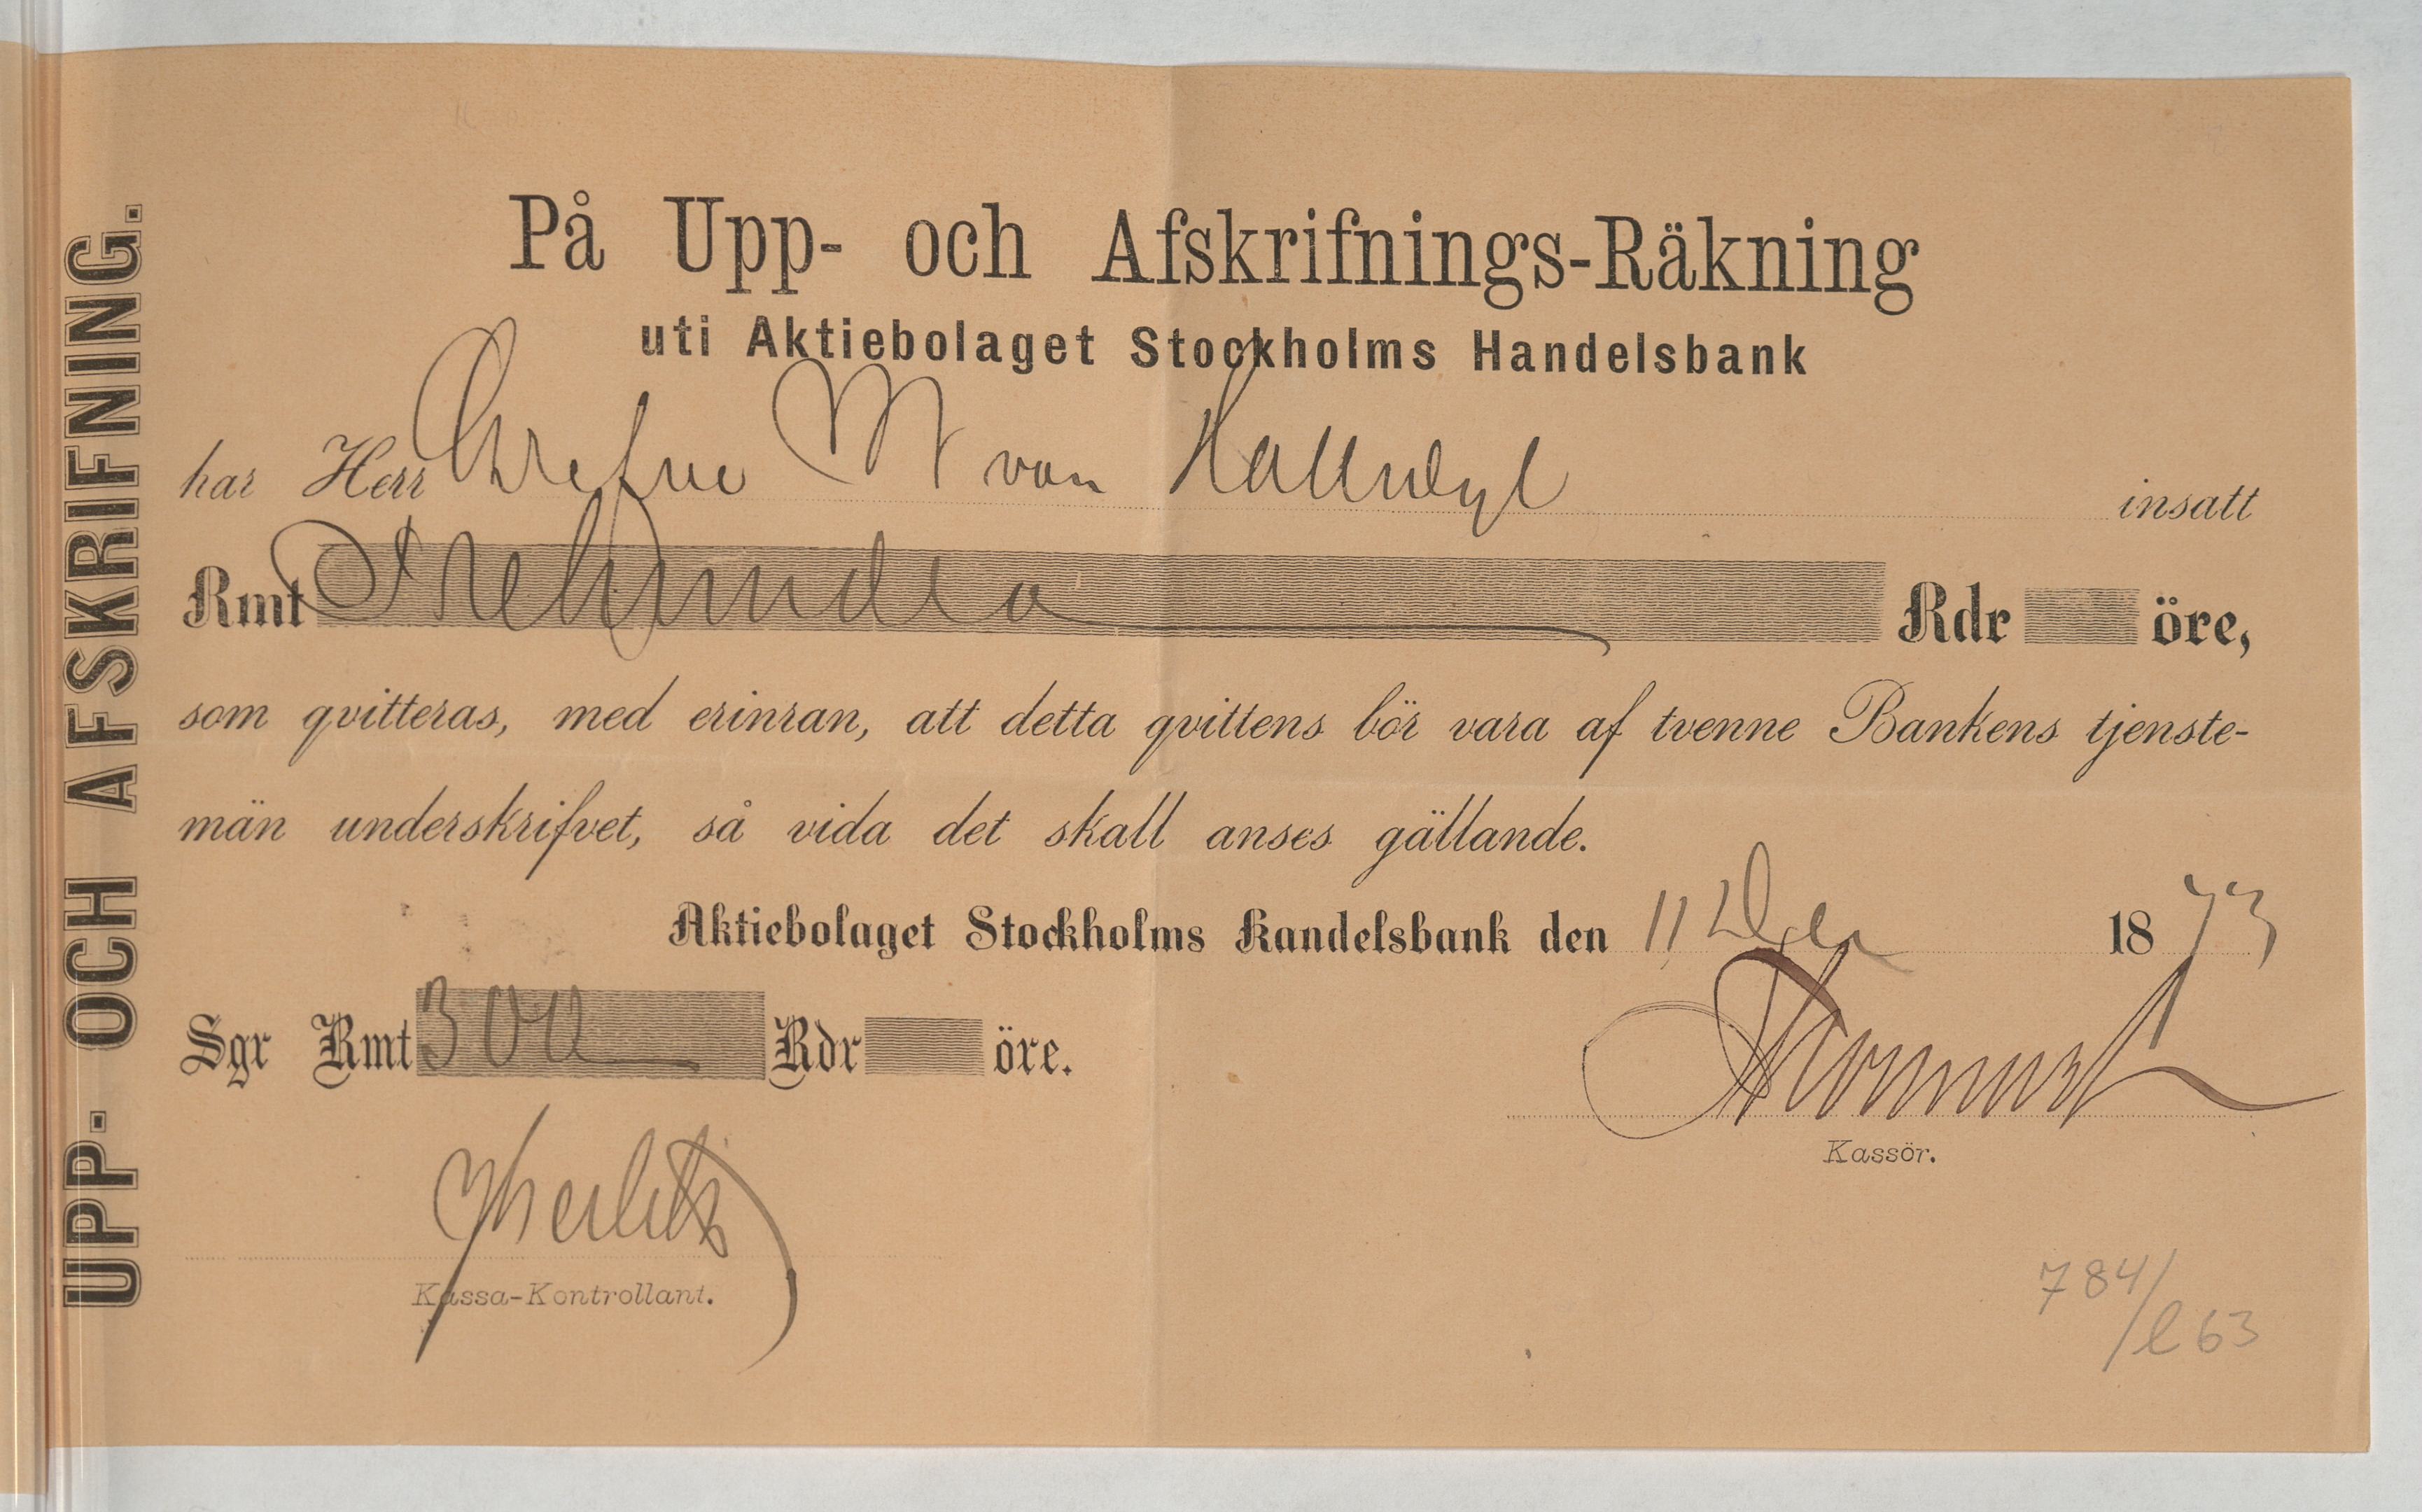 UPP- OCH AFSKRIFNING.
På Upp- och Afskrifnings-Räkning
uti Aktiebolaget Stockholms Handelsbank
har Herr Grefve W von Hallwyl insatt
Rmt Trehundra Rdr öre,
som qvitteras, med erinran, att detta qvittens bör vara af tvenne Bankens tjenste-
män underskrifvet, så vida det skall anses gällande.
Aktiebolaget Stockholms Handelsbank den 11 1873
Sgr Rmt 300 Rdr öre.
Kassör.
Kassa-Kontrollant.
784/
/l 63